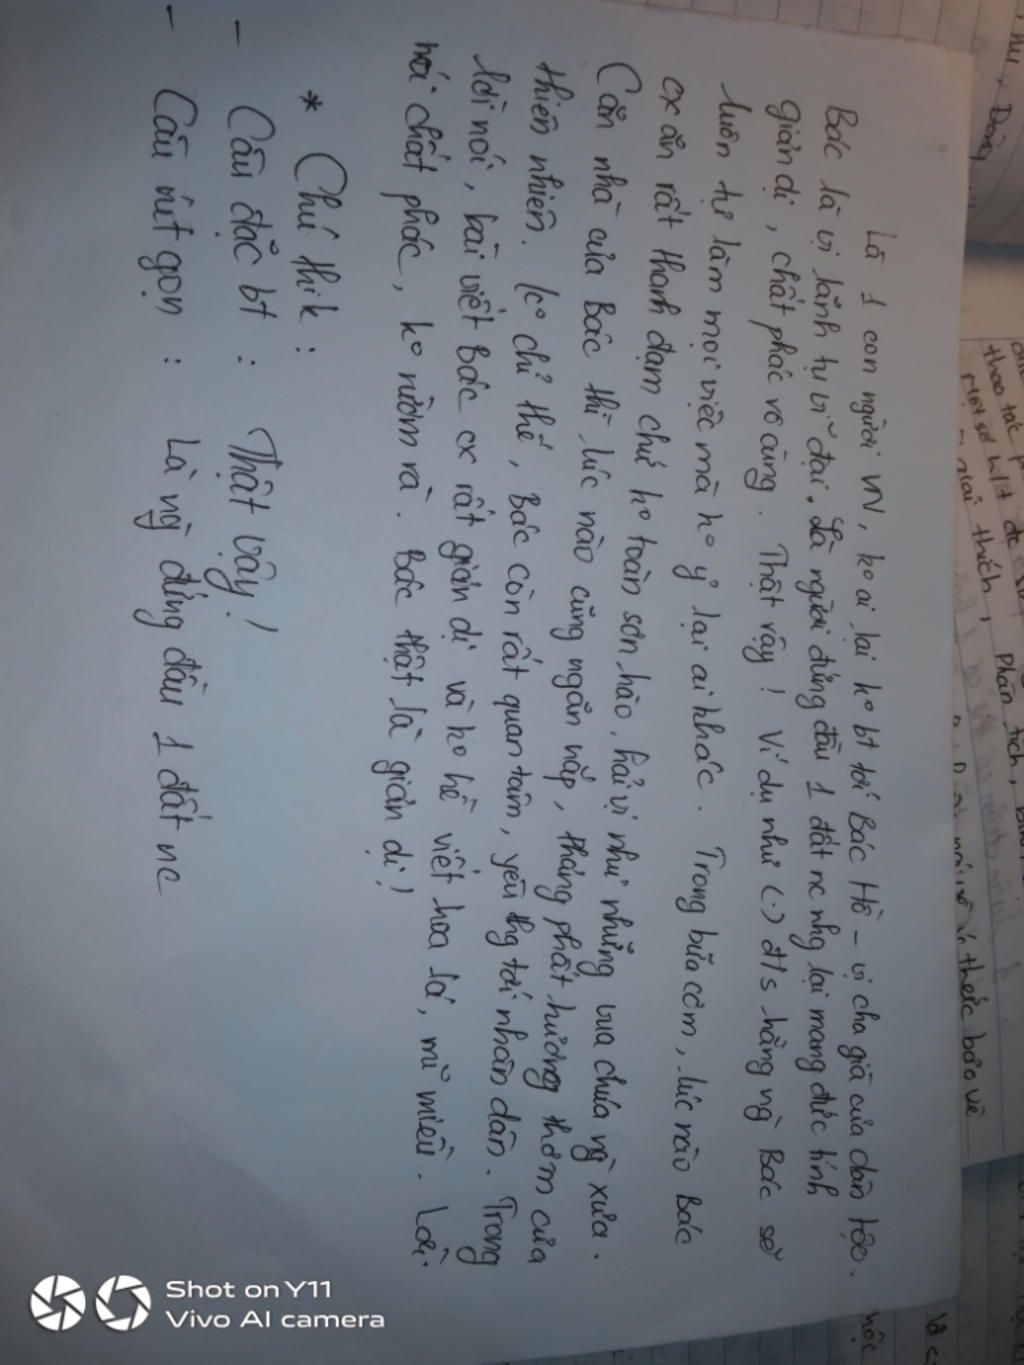 Là 1 con người VN, ko ai lại ko bt tới Bác Hồ - vị cha già của dân tộc.
Bác là vị lãnh tụ vĩ đại. Là người đứng đầu 1 đất nc nhg lại mang đức tính
giản dị, chất phác vô cùng. Thật vậy! Ví dụ như (.) đ/s hằng ng̀ Bác sẽ
luôn tự làm mọi việc mà ko ỷ lại ai khác. Trong bữa cơm, lúc nào Bác
cx ăn rất thanh đạm chứ ko toàn sơn hào, hải vị như những vua chúa ng̀ xưa.
Căn nhà của Bác thì lúc nào cũng ngăn nắp, thoảng phất hương thơm của
thiên nhiên. Ko chỉ thế, Bác còn rất quan tâm, yêu thg tới nhân dân. Trong
lời nói, bài viết Bác cx rất giản dị và ko hề viết hoa lá, mĩ miều. Lời
nói chất phác, ko rườm rà. Bác thật là giản dị!
* Chú thik:
- Câu đặc bt: Thật vậy!
- Câu rút gọn: Là ng̀ đứng đầu 1 đất nc
thao tác
giải thích, phân tích,
thức bảo vệ
Shot on Y11
Vivo AI camera